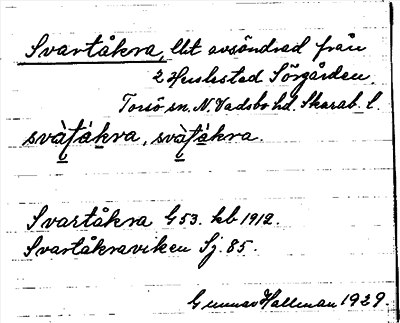 Svartåkra, lht avsöndrad från
2 Huslestad Sörgården,
Torsö sn. N. Vadsbo hd. Skarab. l.
svàt̯ákra, svàt̯ákra.
Svartåkra G 53. hb 1912.
Svartåkraviken Sj. 85.
Gunnar Hallman 1929.